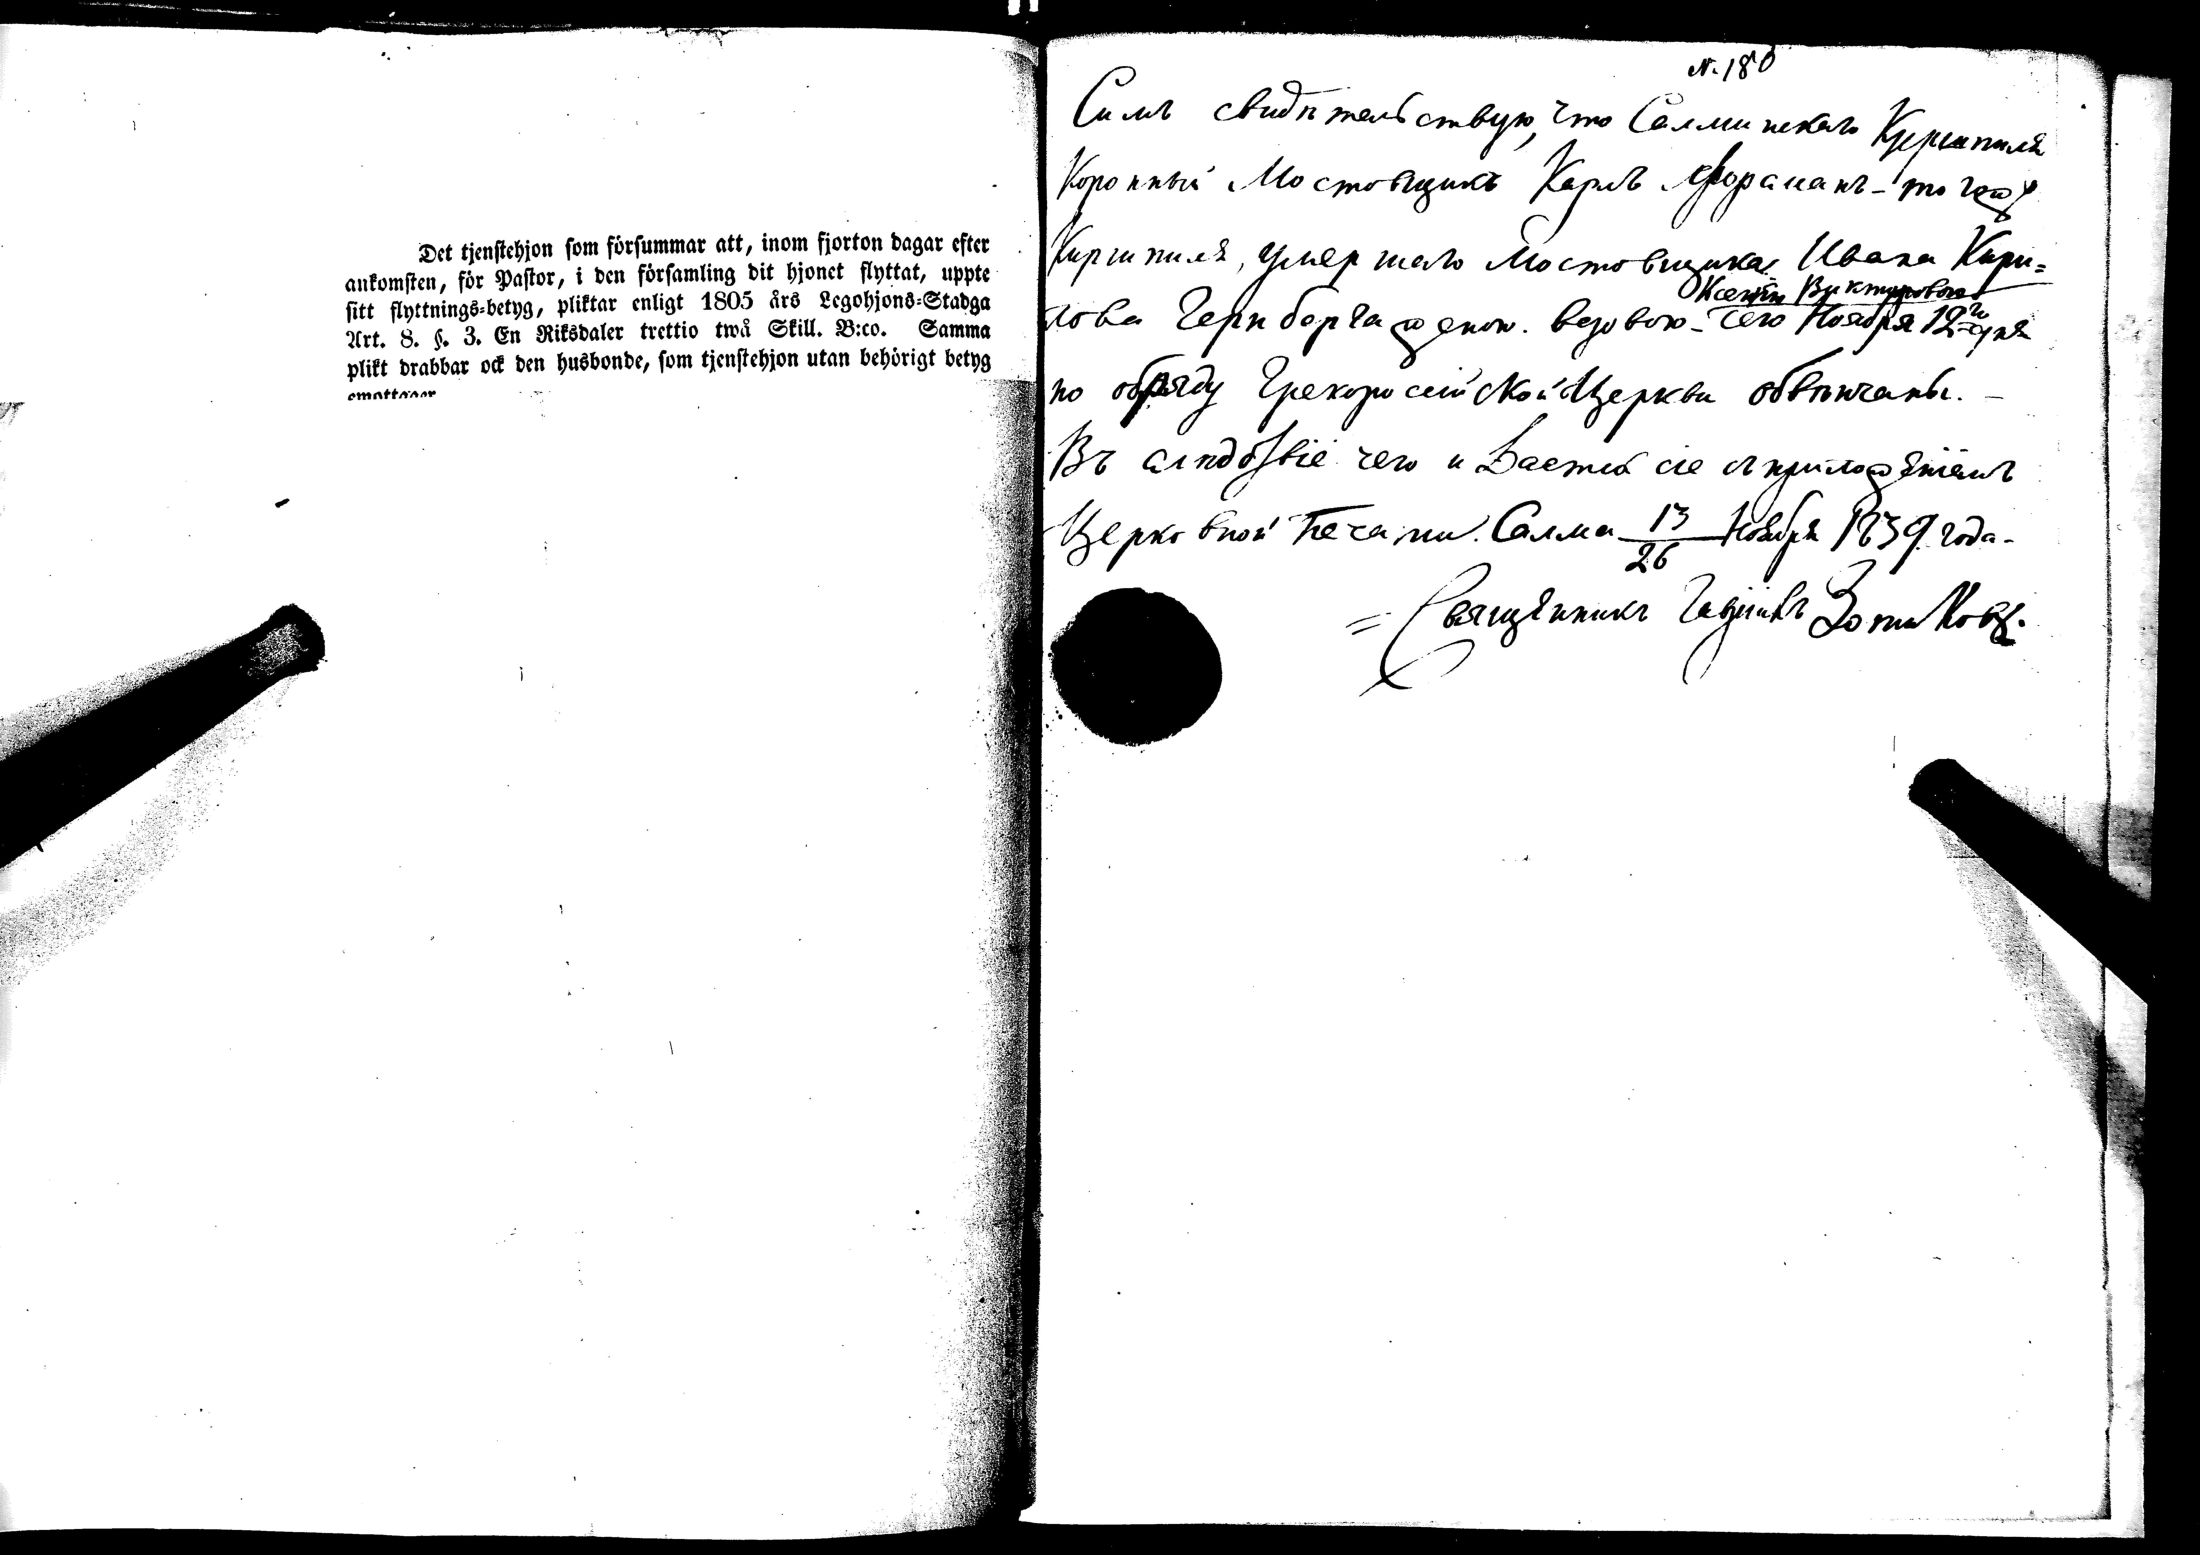 Det tjenstehjon som försummar att, inom fjorton dagar efter
ankomsten, för Pastor, i den församling dit hjonet flyttat, uppte
sitt flyttnings=betyg, pliktar enligt 1805 års Legohjons=Stadga
Art. 8. §. 3. En Riksdaler trettio twå Skill. B:co. Samma
plikt drabbar ock den husbonde, som tjenstehjon utan behörigt betyg
emottager
N. 180
Симъ свидѣтельствую, что Салминскаго Киршпиля
Коронный Мостовщикъ Карлъ - тогож
Киршпиля, умершаго Мостовщика Ивана Кири=
Ксенïи Викторовою
лова женою вдовою - сего Ноября 12го дня
по обряду Грекоросейской Церкви обвѣнчаны. -
Въ слѣдствiе чего и Дается сiе съ приложенiемъ
Церковной Печати. Салма 13/26 Ноября 1839 года -
= Священникъ Зотиковъ.